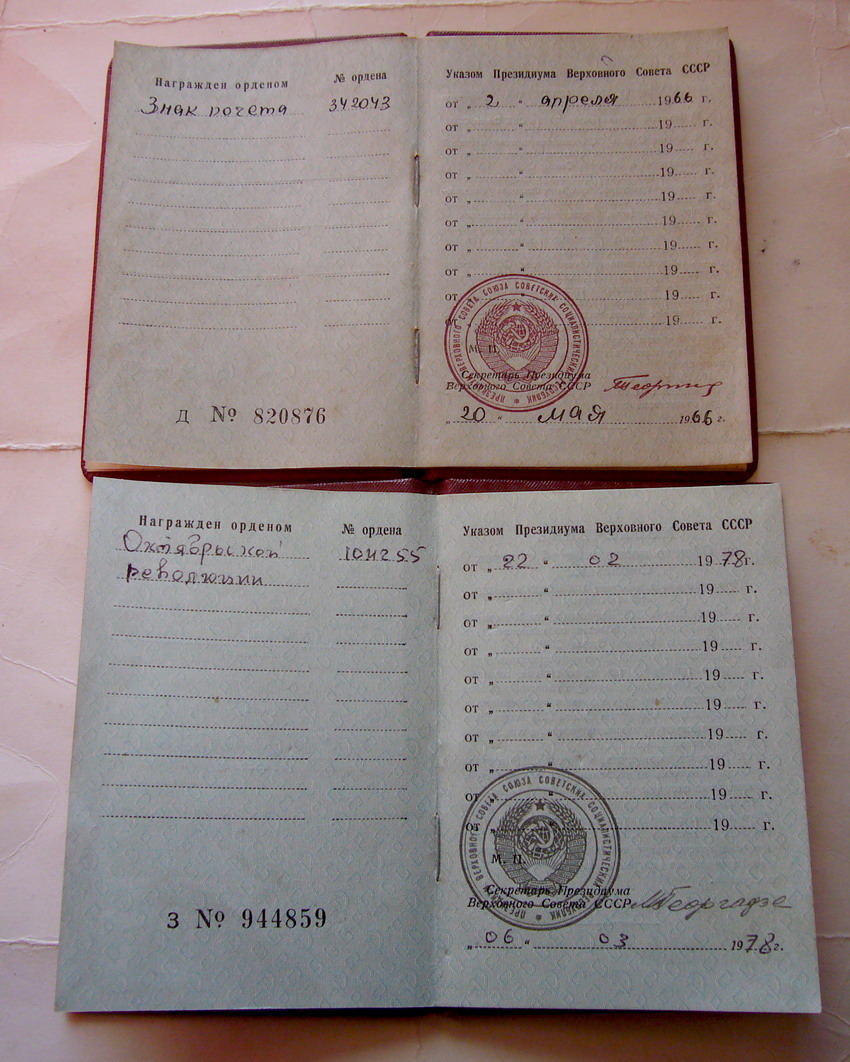 Награжден орденом № ордена
Знак почета 342043
Д № 820876
Указом Президиума Верховного Совета СССР
от „ 2 “ апреля 1966 г.
от „ “ 19 г.
от „ “ 19 г.
от „ “ 19 г.
от „ “ 19 г.
от „ “ 19 г.
от „ “ 19 г.
от „ “ 19 г.
от „ “ 19 г.
от „ “ 19 г.
ПРЕЗИДИУМ ВЕРХОВНОГО СОВЕТА СОЮЗА СОВЕТСКИХ СОЦИАЛИСТИЧЕСКИХ РЕСПУБЛИК
М. П.
Секретарь Президиума
Верховного Совета СССР
„ 20 “ мая 1966 г.
Награжден орденом № ордена
Октябрьской 104255
революции
З № 944859
Указом Президиума Верховного Совета СССР
от „ 22 “ 02 1978 г.
от „ “ 19 г.
от „ “ 19 г.
от „ “ 19 г.
от „ “ 19 г.
от „ “ 19 г.
от „ “ 19 г.
от „ “ 19 г.
от „ “ 19 г.
от „ “ 19 г.
ПРЕЗИДИУМ ВЕРХОВНОГО СОВЕТА СОЮЗА СОВЕТСКИХ СОЦИАЛИСТИЧЕСКИХ РЕСПУБЛИК
М. П.
Секретарь Президиума
Верховного Совета СССР МГеоргадзе
„ 06 “ 03 1978 г.